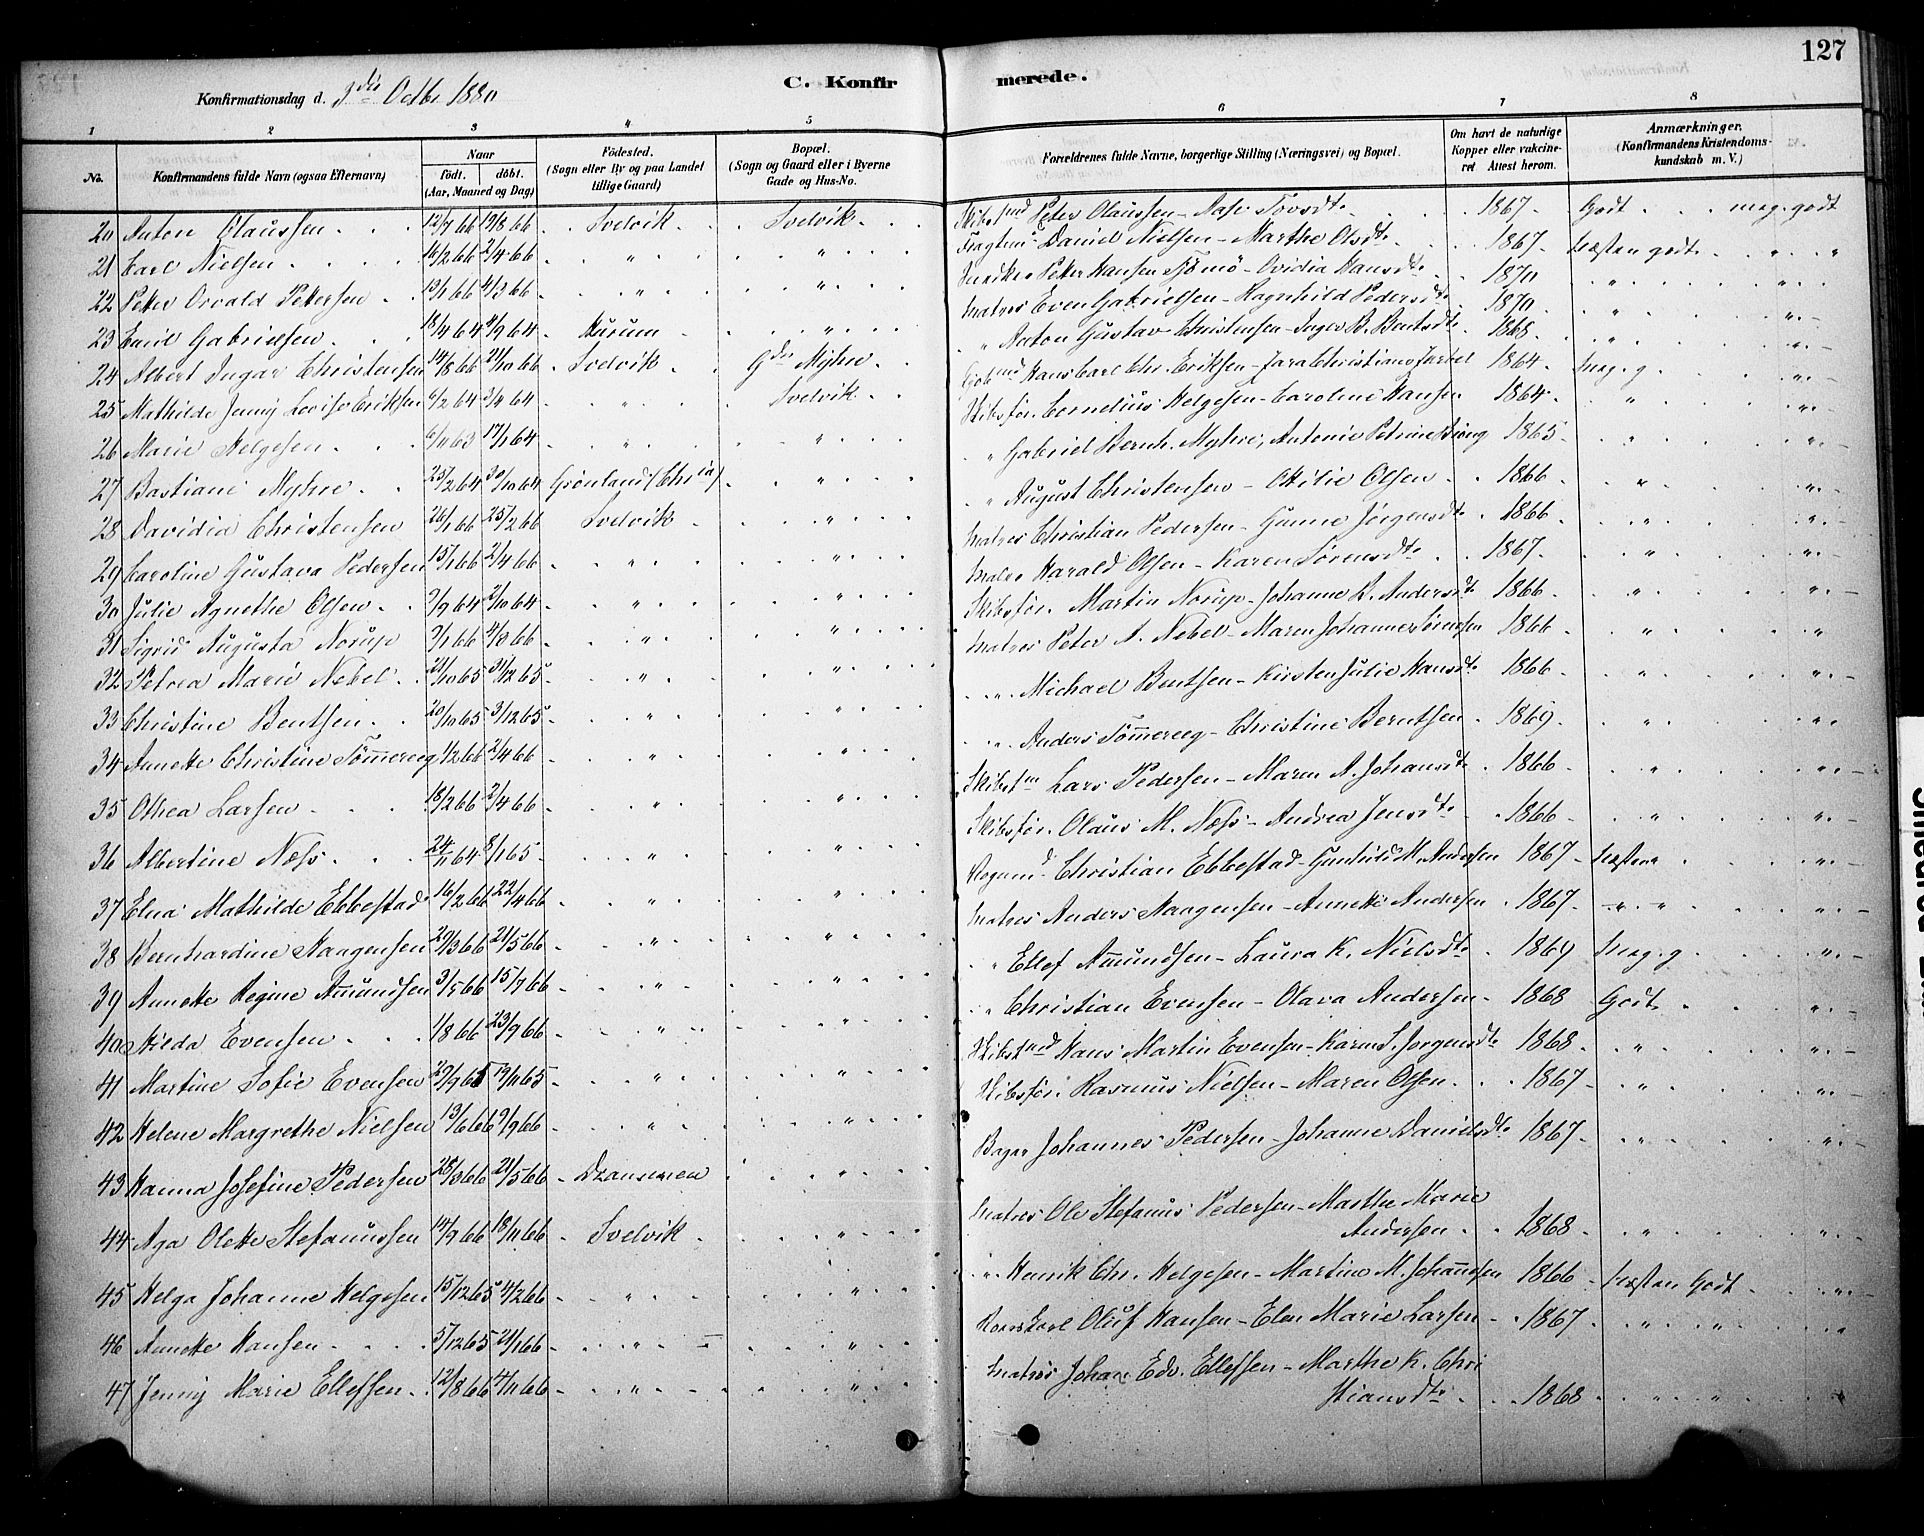 127
Konfirmationsdag d. 3die Octbr 1880 C. Konfirmerede.
1 2 3 4 5 6 7 8
No. Konfirmandens fulde Navn (ogsaa Efternavn) Naar født. døbt. (Aar, Maaned og Dag) Fødested. (Sogn eller By og paa Landet tillige Gaard) Bopæl. (Sogn og Gaard eller i Byerne Gade og Hus-No. Forældrenes fulde Navne, borgerlige Stilling (Næringsvei) og Bopæl. Om havt de naturlige Kopper eller vakcineret Attest herom. Anmærkninger. (Konfirmandens Kristendomskundskab m. V.)
20 Anton Olaussen 12/7 66 19/8 66 Svelvik Svelvik Skibsmd Peter Olaussen - Aase Tovsdtr 1867 Godt meg. godt
21 Carl Nielsen 16/2 66 2/4 66 " " Daniel Nielsen - Marthe Olsdtr 1867 Næsten godt "
22 Peter Osvald Pettersen 4/3 66 " " Peter Hansen - Ovidia Hansdtr 1870 " "
23 Emil Gabrielsen 18/4 64 4/9 64 Hurum " Matros Even Gabrielsen - Ragnhild Pedersdtr 1870 " "
24 Albert Ingar Christensen 14/8 66 21/10 66 Svelvik Gdr Myhre " Anton Gustav Christensen - Inger B. Bentsdtr 1868 " "
25 Mathilde Jenny Lovise Eriksen 6/2 64 3/4 64 " Svelvik Hans Carl Chr. Eriksen - 1864 Meg. g. "
26 Marie Helgesen 6/11 63 17/1 64 " " Skibsfør. Cornelius Helgesen - Caroline Hansen 1864 " "
27 Bastiane Myhre 25/2 64 30/10 64 Grønland (Chria) " " Gabriel Bernh. Myhre, Antonie Petrine 1865 " "
28 Davidia Christensen 26/1 66 25/2 66 Svelvik " " August Christensen - Ottilie Olsen 1866 " "
29 Caroline Gustava Pedersen 15/1 66 2/4 66 " " Matros Christian Pedersen - Gunne Jörgensdtr 1866 " "
30 Julie Agnethe Olsen 7/9 64 2/10 64 " " Matro Harald Olsen - Karen Sörensdtr 1867 " "
31 Sigrid Augusta Norup " " Skibsfør. Martin Norup - Johanne K. Andersdt 1866 " "
32 Petrea Marie Nebel 21/10 65 31/12 65 " " Matros Peter A. Nebel - Maren Johanne Sörensen 1866 " "
33 Christine Bentsen 20/10 65 3/12 65 " " " Michael Bentsen - Kirsten Julie Hansdtr 1866 " "
34 Annette Christine Tömmereeg 1/2 66 2/4 66 " " " Anders Tömmereeg - Christine Berntsen 1869 " "
35 Othea Larsen 18/2 66 2/4 66 " " Skibstm Lars Pedersen - Maren A. Johansdtr 1866 " "
36 Albertine Næss 24/11 64 8/1 65 " " Skibsfør. Olaus M. Næss - Andrea Jensdtr 1866 " "
37 Elna Mathilde Ebbestad 16/2 66 22/4 66 " " Christian Ebbestad - Gunhild M. Andersen 1867 Næsten "
38 Bernhardine Haagensen 29/3 66 21/5 66 " " Matros Anders Haagensen - Annette Andersen 1867 " " "
39 Annette Regine Amundsen 3/5 66 15/7 66 " " " Ellef Amundsen - Laura K. Nielsdtr 1869 Meg. g "
40 Hilda Evensen 1/8 66 23/9 66 " " " Christian Evensen - Olava Andersen 1868 Godt "
41 Martine Sofie Evensen 29/9 65 19/11 65 " " Hans Martin Evensen - Karen S. Jörgensdtr 1868 " "
42 Helene Margrethe Nielsen 13/6 66 9/9 66 " " Skibsfør. Rasmus Nielsen - Maren Olsen 1867 " "
43 Hanna Josefine Pedersen 25/3 66 21/5 66 Drammen " Bager Johannes Pedersen - Johanne Danielsdtr 1867 " "
44 Aga Olette Stefanussen 14/9 66 18/11 66 Svelvik " Matros Ole Stefanus Pedersen - Marthe Marie
Andersen 1868 " "
45 Helga Johanne Helgesen 15/12 65 4/2 66 " " " Henrik Chr. Helgesen - Martine M. Johannsen 1866 Næsten Godt "
46 Annette Hansen 5/12 65 21/1 66 " " Oluf Hansen - Elen Marie Larsen 1867 " " "
47 Jenny Marie Ellefsen 12/8 66 4/11 66 " " Matros Johan Edv. Ellefsen - Marthe K. Chri
stiansdtr 1868 " " "